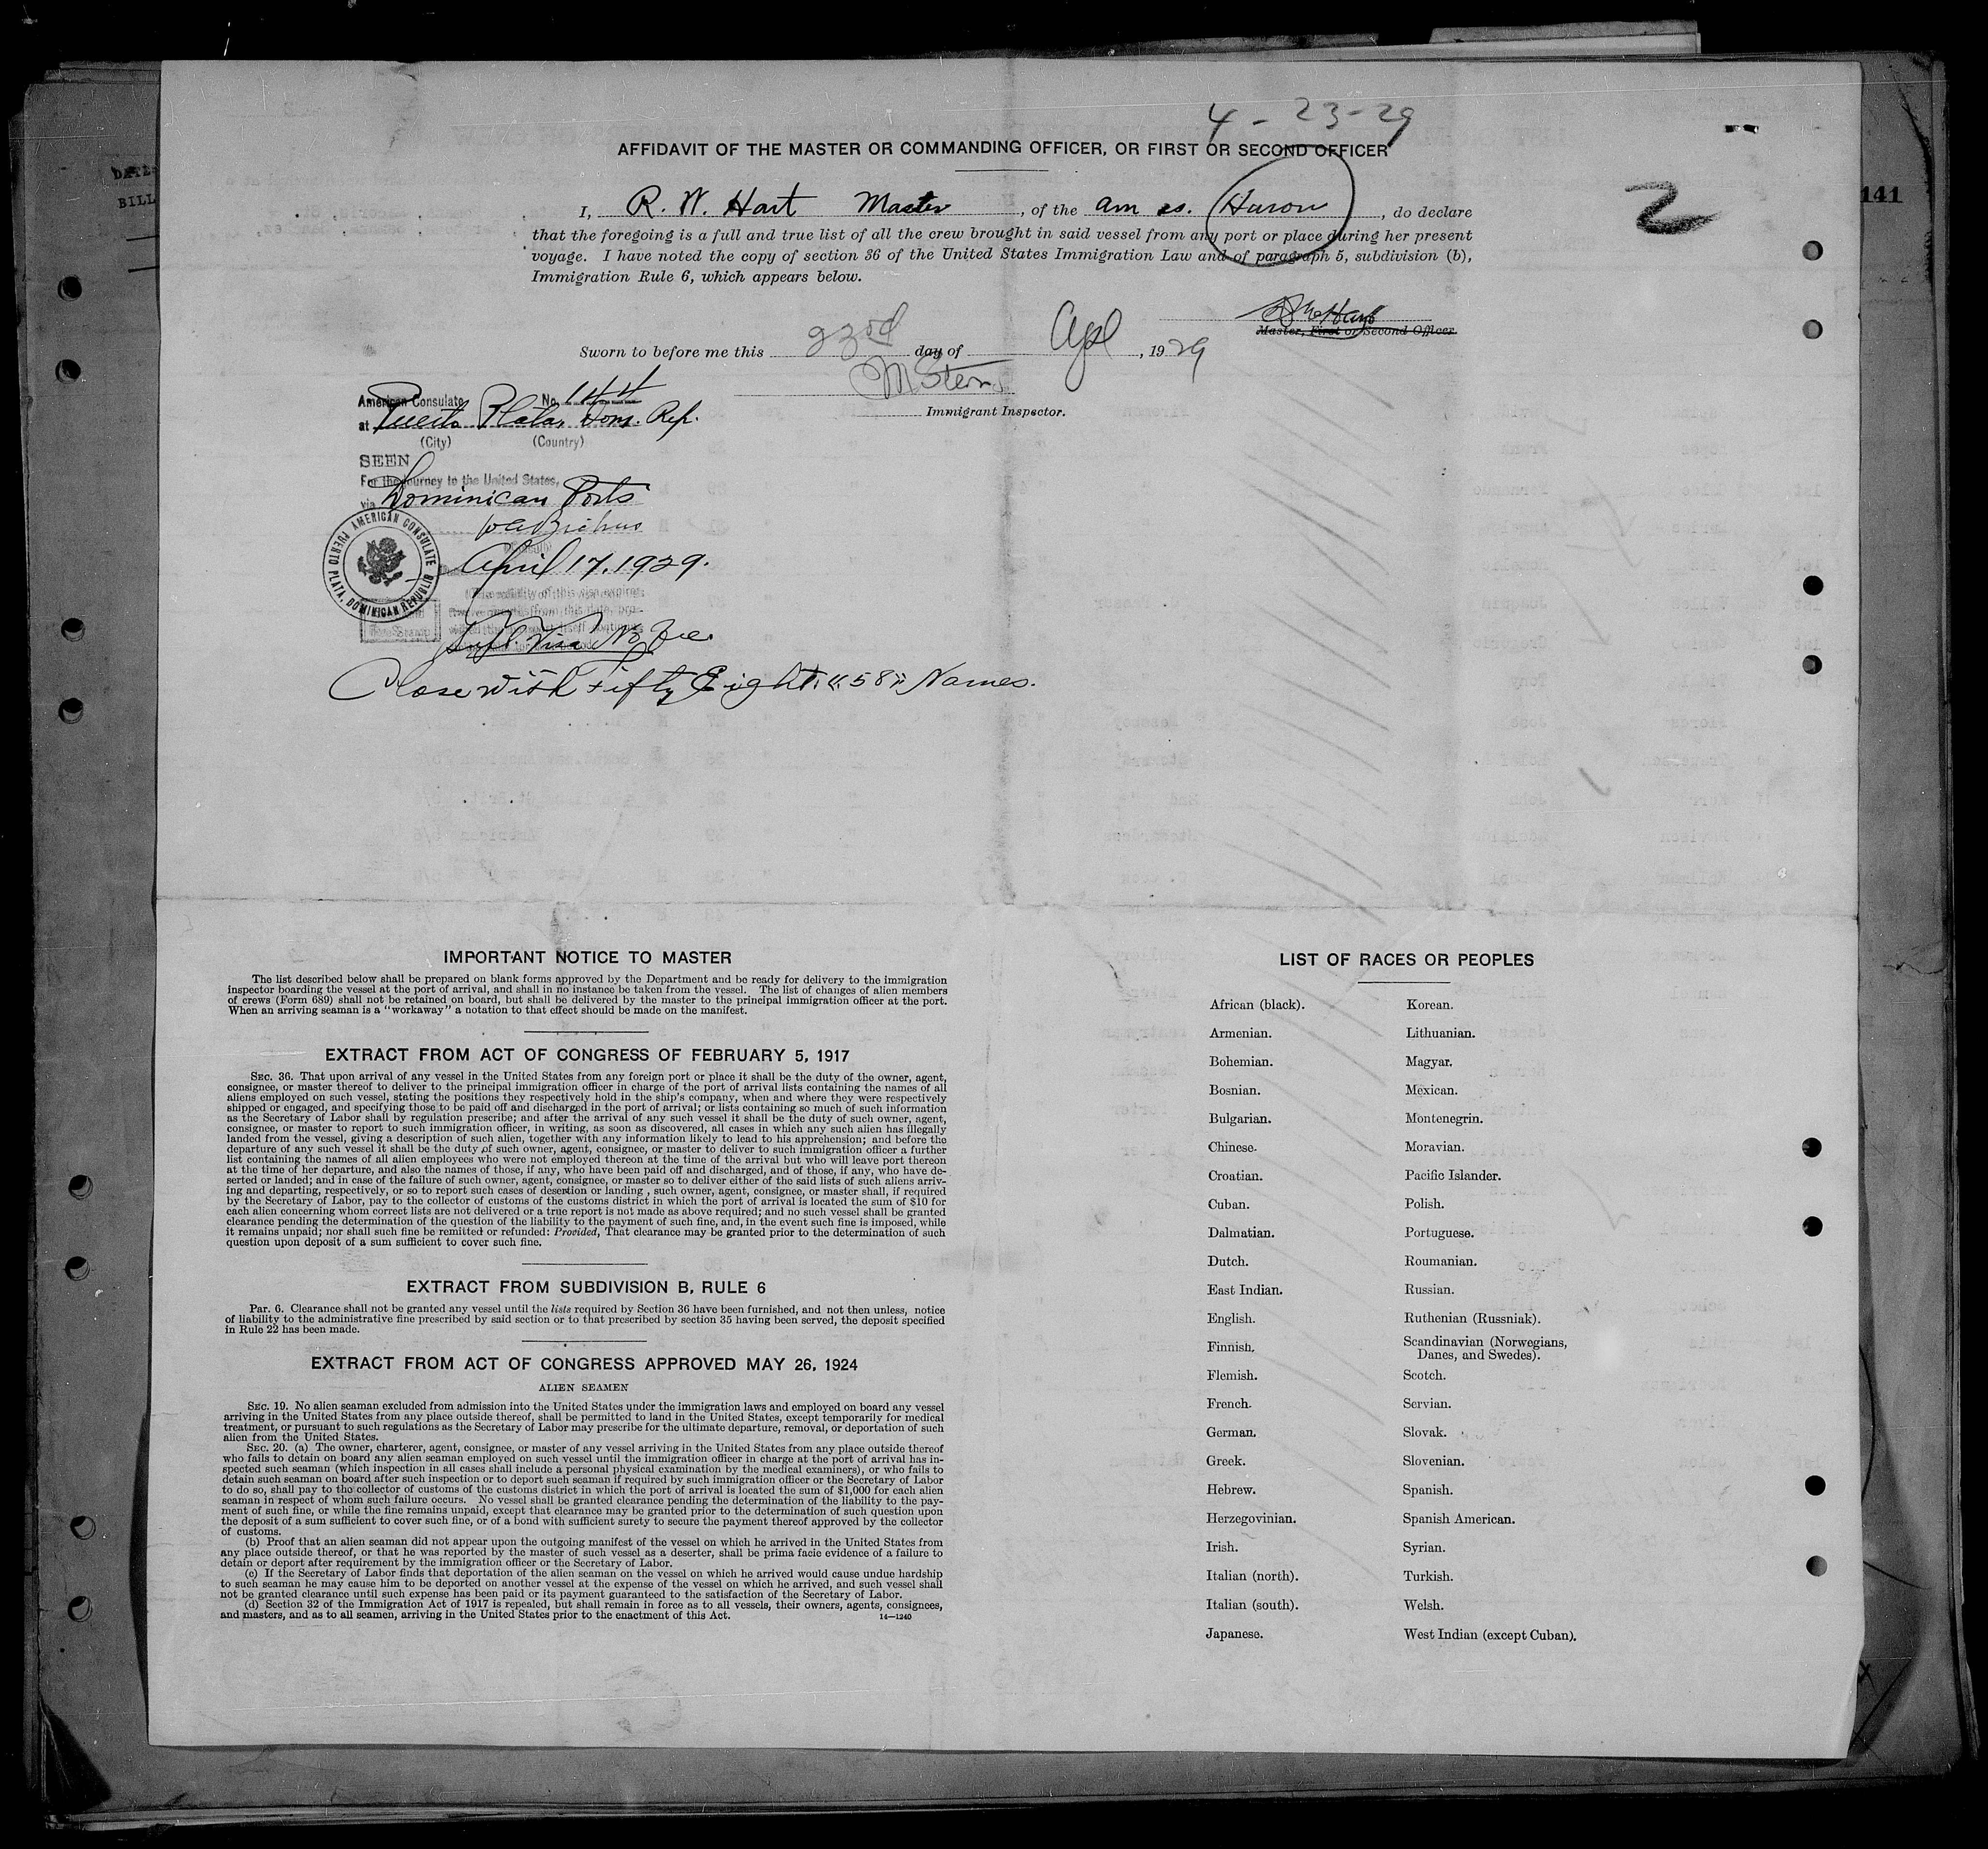 4-23-29
AFFIDAVIT OF THE MASTER OR COMMANDING OFFICER, OR FIRST OR SECOND OFFICER
I, R. W. Hart Master, of the Am ss. Huron, do declare
that the foregoing is a full and true list of all the crew brought in said vessel from any port or place during her present
voyage. I have noted the copy of section 36 of the United States Immigration Law and of paragraph 5, subdivision (b),
Immigration Rule 6, which appears below.
2
141
DATE
BILL
R W Hart
Master, First or Second Officer
Sworn to before me this 23rd day of Apl, 1929
M Stern
Immigrant Inspector.
American Consulate No. 144
at Puerto Plata, Dom. Rep.
(City) (Country)
SEEN
For the journey to the United States,
via Dominican Ports
April 17, 1929.
AMERICAN CONSULATE
PUERTO PLATA, DOMINICAN REPUBLIC
No Fee
Close with Fifty Eight "58" Names.
IMPORTANT NOTICE TO MASTER
The list described below shall be prepared on blank forms approved by the Department and be ready for delivery to the immigration
inspector boarding the vessel at the port of arrival, and shall in no instance be taken from the vessel. The list of changes of alien members
of crews (Form 689) shall not be retained on board, but shall be delivered by the master to the principal immigration officer at the port.
When an arriving seaman is a "workaway" a notation to that effect should be made on the manifest.
EXTRACT FROM ACT OF CONGRESS OF FEBRUARY 5, 1917
SEC. 36. That upon arrival of any vessel in the United States from any foreign port or place it shall be the duty of the owner, agent,
consignee, or master thereof to deliver to the principal immigration officer in charge of the port of arrival lists containing the names of all
aliens employed on such vessel, stating the positions they respectively hold in the ship's company, when and where they were respectively
shipped or engaged, and specifying those to be paid off and discharged in the port of arrival; or lists containing so much of such information
as the Secretary of Labor shall by regulation prescribe; and after the arrival of any such vessel it shall be the duty of such owner, agent,
consignee, or master to report to such immigration officer, in writing, as soon as discovered, all cases in which any such alien has illegally
landed from the vessel, giving a description of such alien, together with any information likely to lead to his apprehension; and before the
departure of any such vessel it shall be the duty of such owner, agent, consignee, or master to deliver to such immigration officer a further
list containing the names of all alien employees who were not employed thereon at the time of the arrival but who will leave port thereon
at the time of her departure, and also the names of those, if any, who have been paid off and discharged, and of those, if any, who have de-
serted or landed; and in case of the failure of such owner, agent, consignee, or master so to deliver either of the said lists of such aliens arriv-
ing and departing, respectively, or so to report such cases of desertion or landing , such owner, agent, consignee, or master shall, if required
by the Secretary of Labor, pay to the collector of customs of the customs district in which the port of arrival is located the sum of $10 for
each alien concerning whom correct lists are not delivered or a true report is not made as above required; and no such vessel shall be granted
clearance pending the determination of the question of the liability to the payment of such fine, and, in the event such fine is imposed, while
it remains unpaid; nor shall such fine be remitted or refunded: Provided, That clearance may be granted prior to the determination of such
question upon deposit of a sum sufficient to cover such fine.
EXTRACT FROM SUBDIVISION B, RULE 6
Par. 6. Clearance shall not be granted any vessel until the lists required by Section 36 have been furnished, and not then unless, notice
of liability to the administrative fine prescribed by said section or to that prescribed by section 35 having been served, the deposit specified
in Rule 22 has been made.
EXTRACT FROM ACT OF CONGRESS APPROVED MAY 26, 1924
ALIEN SEAMEN
SEC. 19. No alien seaman excluded from admission into the United States under the immigration laws and employed on board any vessel
arriving in the United States from any place outside thereof, shall be permitted to land in the United States, except temporarily for medical
treatment, or pursuant to such regulations as the Secretary of Labor may prescribe for the ultimate departure, removal, or deportation of such
alien from the United States.
SEC. 20. (a) The owner, charterer, agent, consignee, or master of any vessel arriving in the United States from any place outside thereof
who fails to detain on board any alien seaman employed on such vessel until the immigration officer in charge at the port of arrival has in-
spected such seaman (which inspection in all cases shall include a personal physical examination by the medical examiners), or who fails to
detain such seaman on board after such inspection or to deport such seaman if required by such immigration officer or the Secretary of Labor
to do so, shall pay to the collector of customs of the customs district in which the port of arrival is located the sum of $1,000 for each alien
seaman in respect of whom such failure occurs. No vessel shall be granted clearance pending the determination of the liability to the pay-
ment of such fine, or while the fine remains unpaid, except that clearance may be granted prior to the determination of such question upon
the deposit of a sum sufficient to cover such fine, or of a bond with sufficient surety to secure the payment thereof approved by the collector
of customs.
(b) Proof that an alien seaman did not appear upon the outgoing manifest of the vessel on which he arrived in the United States from
any place outside thereof, or that he was reported by the master of such vessel as a deserter, shall be prima facie evidence of a failure to
detain or deport after requirement by the immigration officer or the Secretary of Labor.
(c) If the Secretary of Labor finds that deportation of the alien seaman on the vessel on which he arrived would cause undue hardship
to such seaman he may cause him to be deported on another vessel at the expense of the vessel on which he arrived, and such vessel shall
not be granted clearance until such expense has been paid or its payment guaranteed to the satisfaction of the Secretary of Labor.
(d) Section 32 of the Immigration Act of 1917 is repealed, but shall remain in force as to all vessels, their owners, agents, consignees,
and masters, and as to all seamen, arriving in the United States prior to the enactment of this Act. 14—1240
LIST OF RACES OR PEOPLES
African (black). Korean.
Armenian. Lithuanian.
Bohemian. Magyar.
Bosnian. Mexican.
Bulgarian. Montenegrin.
Chinese. Moravian.
Croatian. Pacific Islander.
Cuban. Polish.
Dalmatian. Portuguese.
Dutch. Roumanian.
East Indian. Russian.
English. Ruthenian (Russniak).
Finnish. Scandinavian (Norwegians,
Danes, and Swedes).
Flemish. Scotch.
French. Servian.
German. Slovak.
Greek. Slovenian.
Hebrew. Spanish.
Herzegovinian. Spanish American.
Irish. Syrian.
Italian (north). Turkish.
Italian (south). Welsh.
Japanese. West Indian (except Cuban).